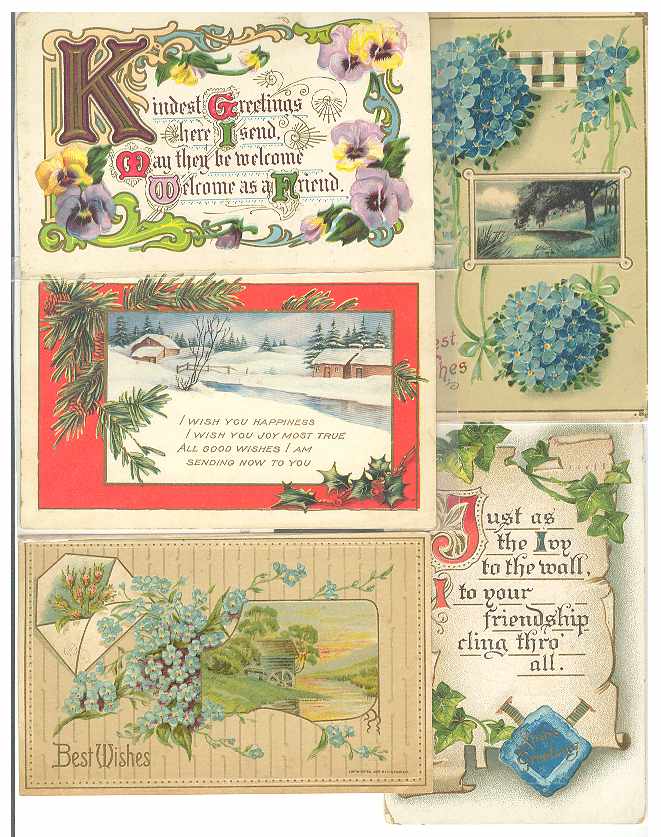 Kindest Greetings
here I send,
May they be welcome
Welcome as a Friend.
I WISH YOU HAPPINESS
I WISH YOU JOY MOST TRUE
ALL GOOD WISHES I AM
SENDING NOW TO YOU
Best Wishes
est
hes
Just as
the Ivy
to the wall,
to your
friendship
cling thro'
all.